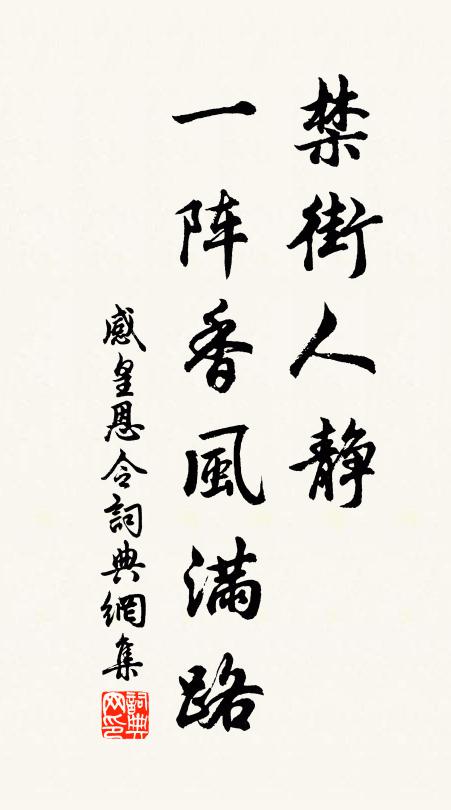 禁街人静
一阵香風满路
感皇恩令詞典網集
詞典
网印